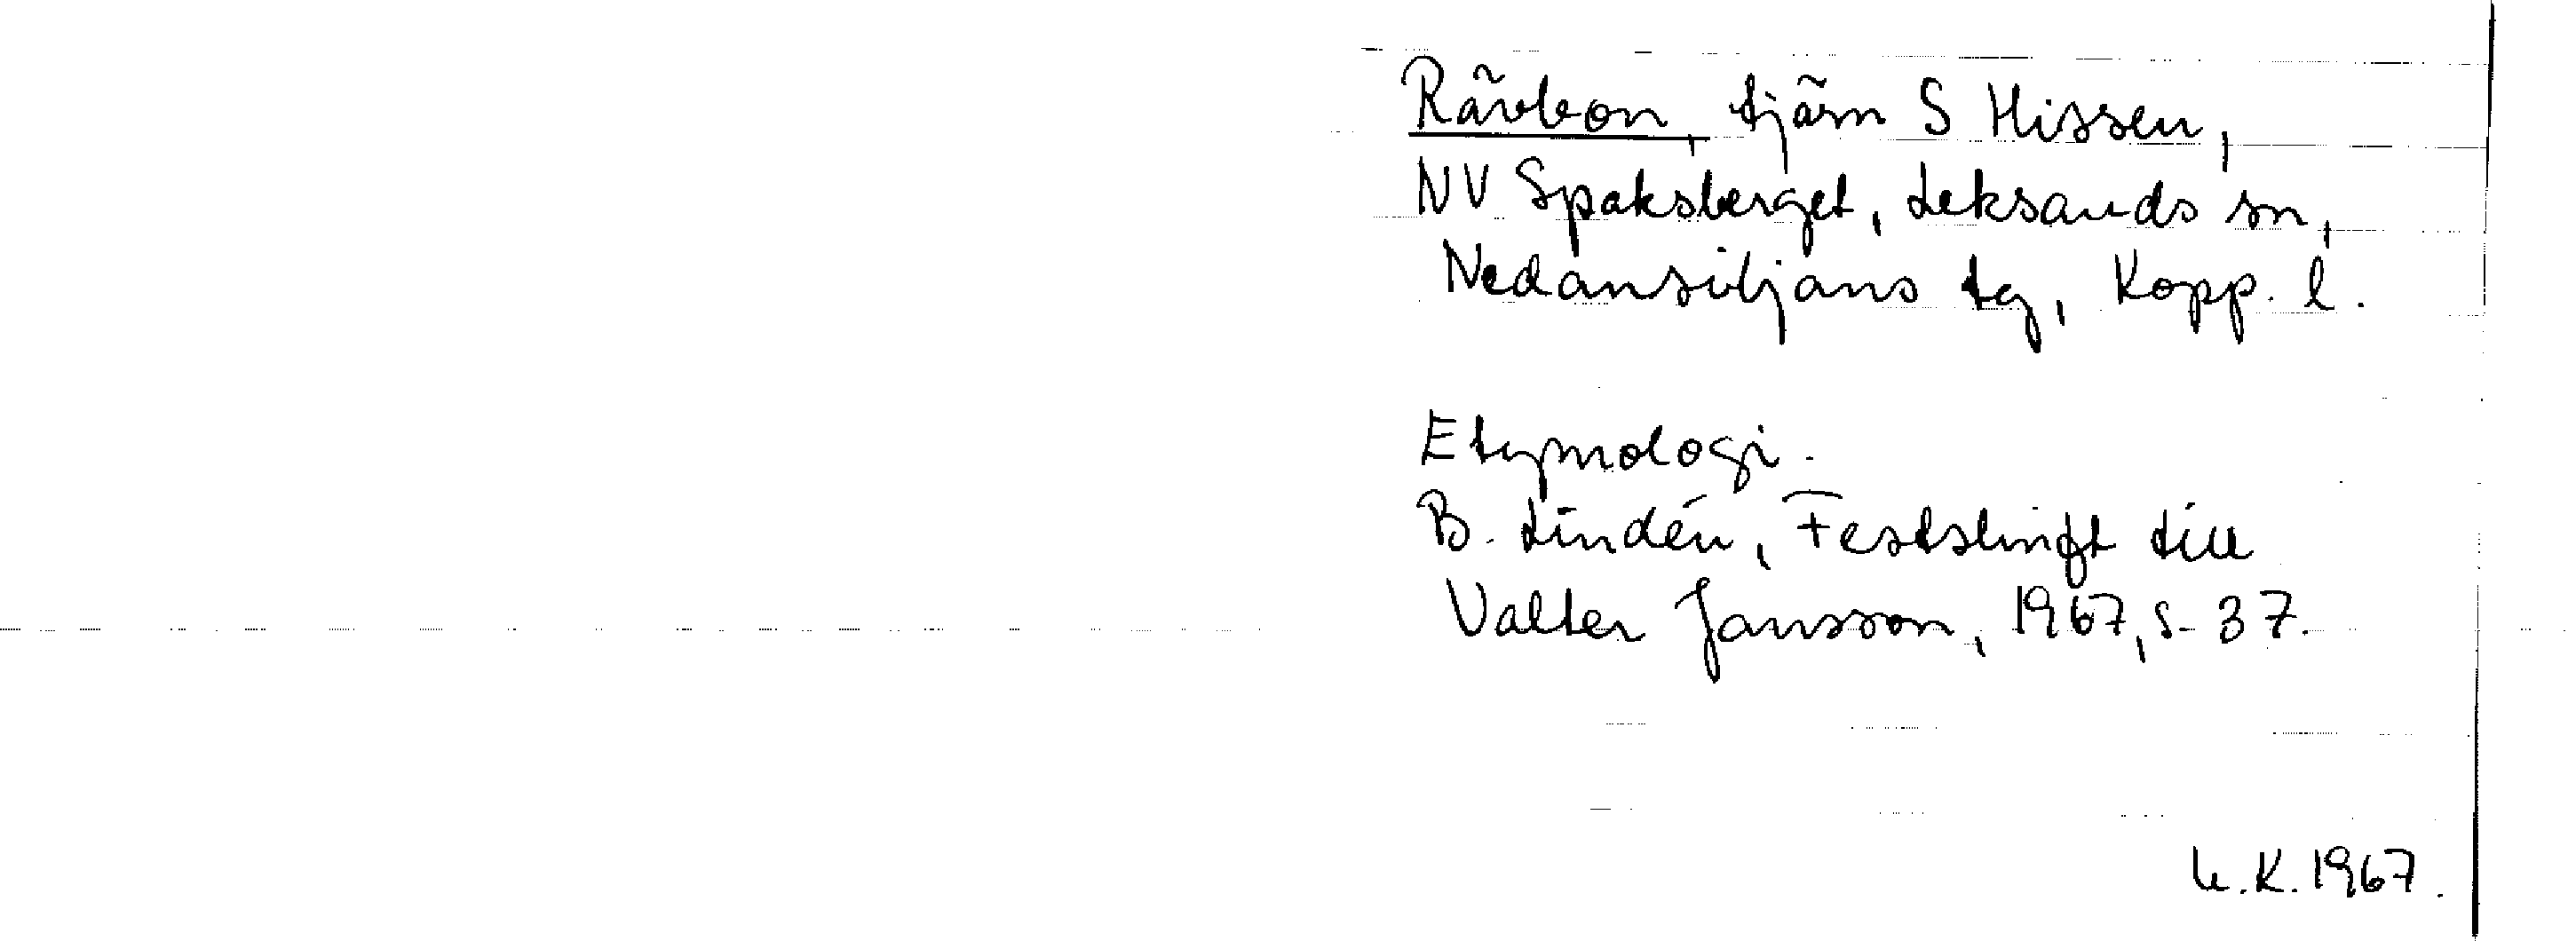 Rävbon, tjärn S Hissen,
NV Spaksberget, Leksands sn,
Nedansiljans tg, Kopp. l.
Etymologi.
B. Lindén, Festskrift till
Valter Jansson, 1967, s. 37.
U.K. 1967.